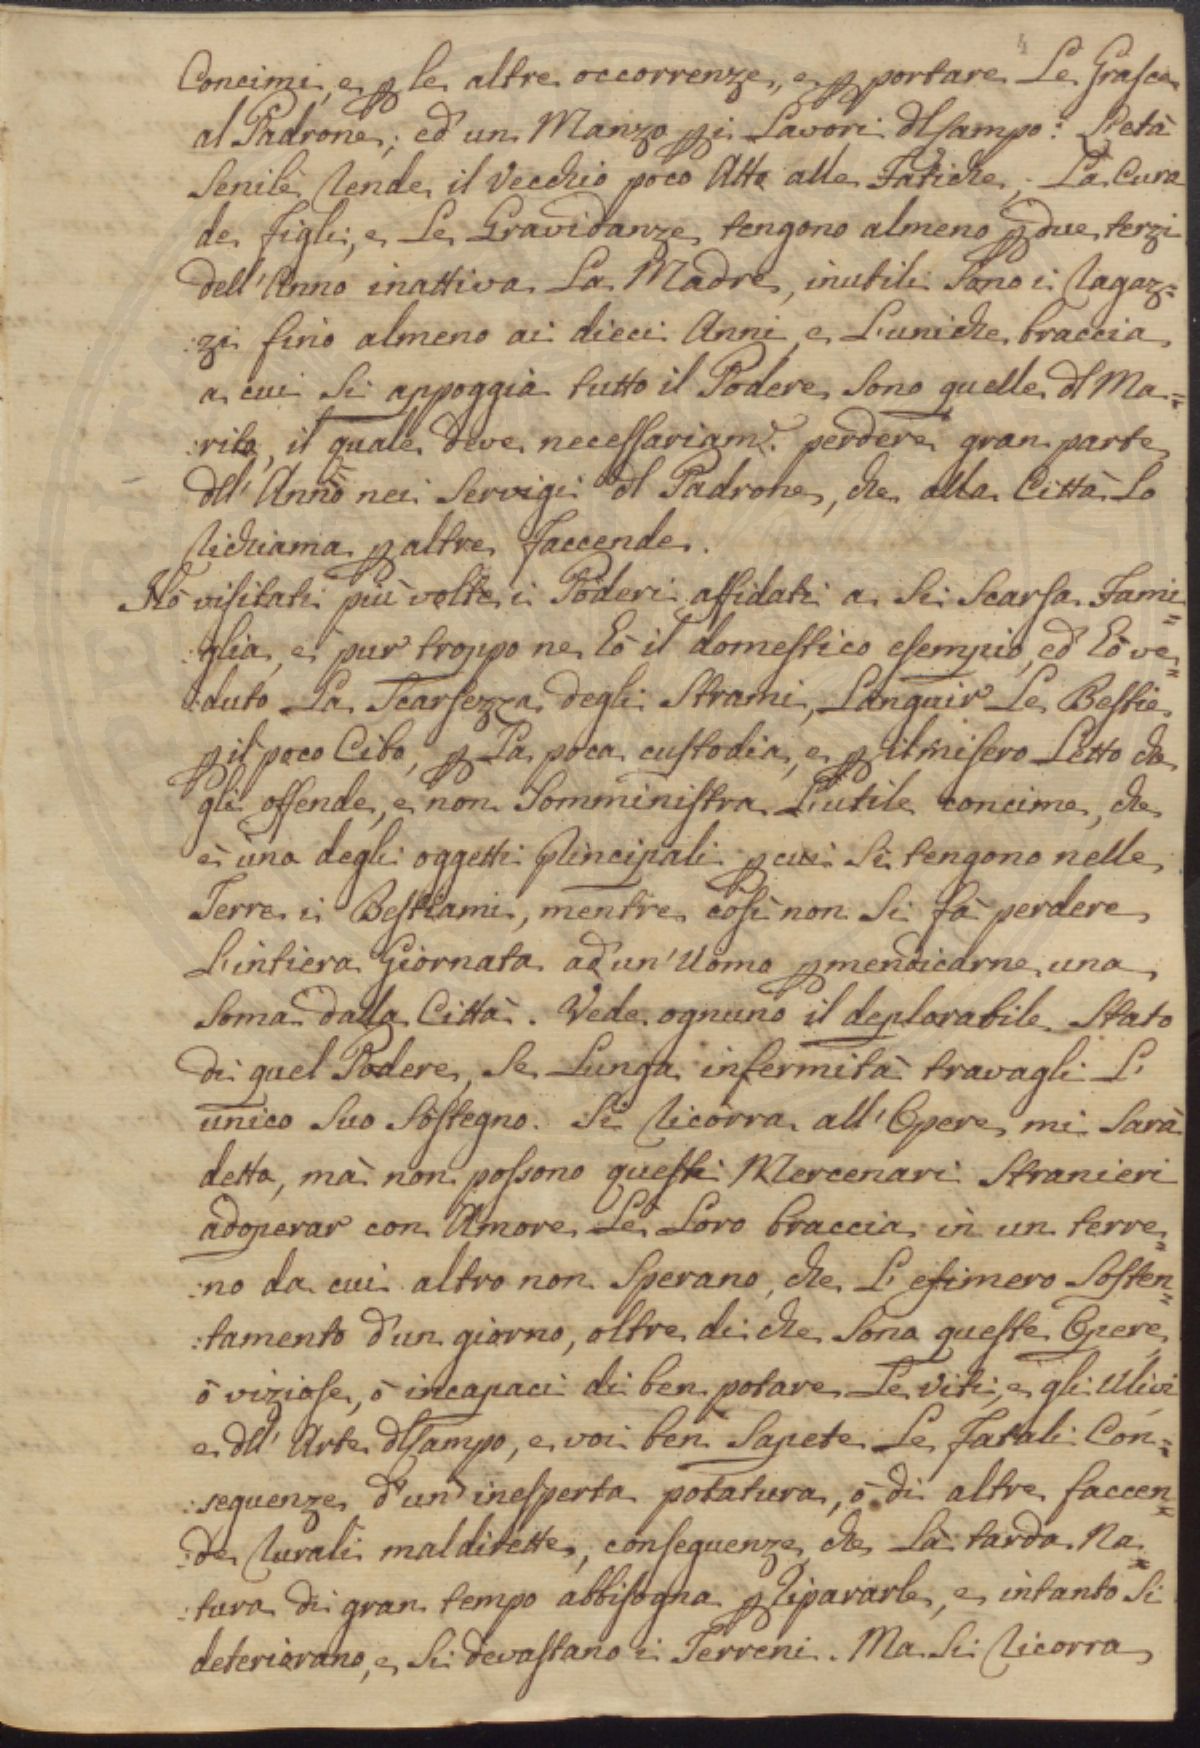 4
Concimi, e p le altre occorrenze, e p portare Le Grasce
al Padrone; ed un Manzo p i Lavori dl Campo: L'età
Senile rende il Vecchio poco Atto alle Fatiche; La Cura
de figli, e Le Gravidanze tengono almeno p due terzi
dell'Anno inattiva La Madre, inutili Sono i ragaz=
:zi fino almeno ai dieci Anni, e L'uniche braccia
a cui Si appoggia tutto il Podere Sono quelle dl Ma=
:rito, il quale deve necessariam.e perdere gran parte
dll'Anno nei Servigi dl Padrone, che alla Città Lo
richiama p altre Faccende.
Hò visitati più volte i Poderi affidati a Si Scarsa Fami=
:glia, e pur troppo ne hò il domestico esempio, ed hò ve=
:duto La Scarsezza degli Strami, Languir Le Bestie
p il poco Cibo, p La poca custodia, e p il misero Letto che
gli offende, e non Somministra L'utile concime, che
è uno degli oggetti principali p cui Si tengono nelle
Terre i Bestiami, mentre così non Si fà perdere
L'intiera Giornata ad un'Uomo p mendicarne una
Soma dalla Città. Vede ognuno il deplorabile Stato
di quel Podere, Se Lunga infermità travagli L'
unico Suo Sostegno. Si ricorra all'Opere mi Sarà
detto, mà non possono questi Mercenari Stranieri
adoperar con Amore Le Loro braccia in un terre=
:no da cui altro non Sperano, che L'efimero Sosten=
:tamento d'un giorno, oltre di che Sono queste Opere
ò viziose, ò incapaci di ben potare Le Viti, e gli Ulivi
e dll'Arte dl Campo, e voi ben Sapete Le Fatali Con=
:seguenze d'un inesperta potatura, ò di altre faccen=
:de rurali mal dirette, conseguenze che La tarda Na=
:tura di gran tempo abbisogna p ripararle, e intanto Si
deteriorano, e Si devastano i Terreni. Ma Si ricorra